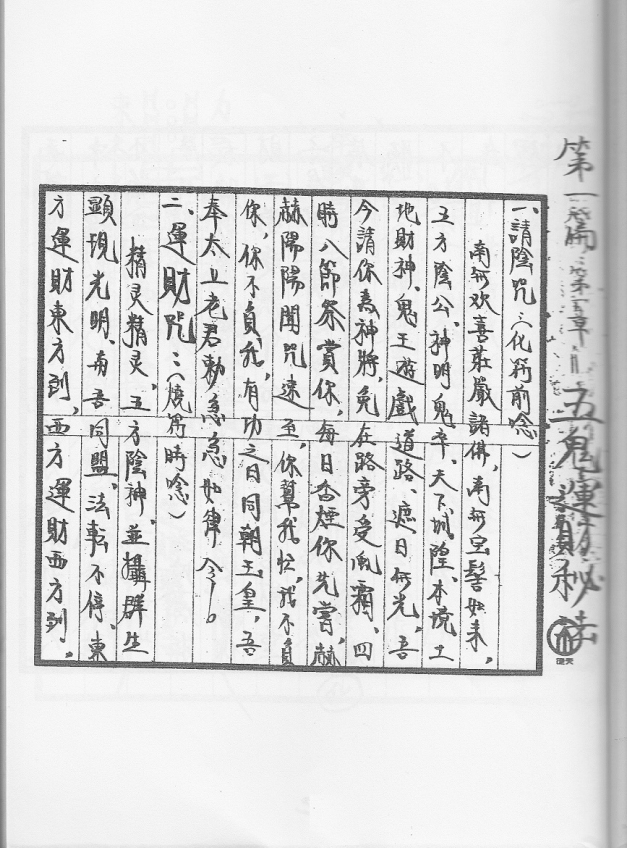 第一篇:第五章=五鬼運財秘法
一、請陰咒:(化符前唸)
南無欢喜莊嚴諸佛,南無宝髻如来,
五方陰公、神明鬼卒、天下城隍、本境土
地財神、鬼王遊戲道路、遮日無光,吾
今請你為神將,免在路旁受風霜、四
時八節祭賞你,每日香煙你先嘗,赫
赫陽陽聞咒速至,你幫我忙,我不負
你,你不負我,有功之日同朝玉皇,吾
奉太上老君勅急急如律令。
二、運財咒:(燒符時唸)
精灵精灵,五方陰神,並攝群生
顯現光明、甭吾同盟、法転不停、東
方運財東方到,西方運財西方到。